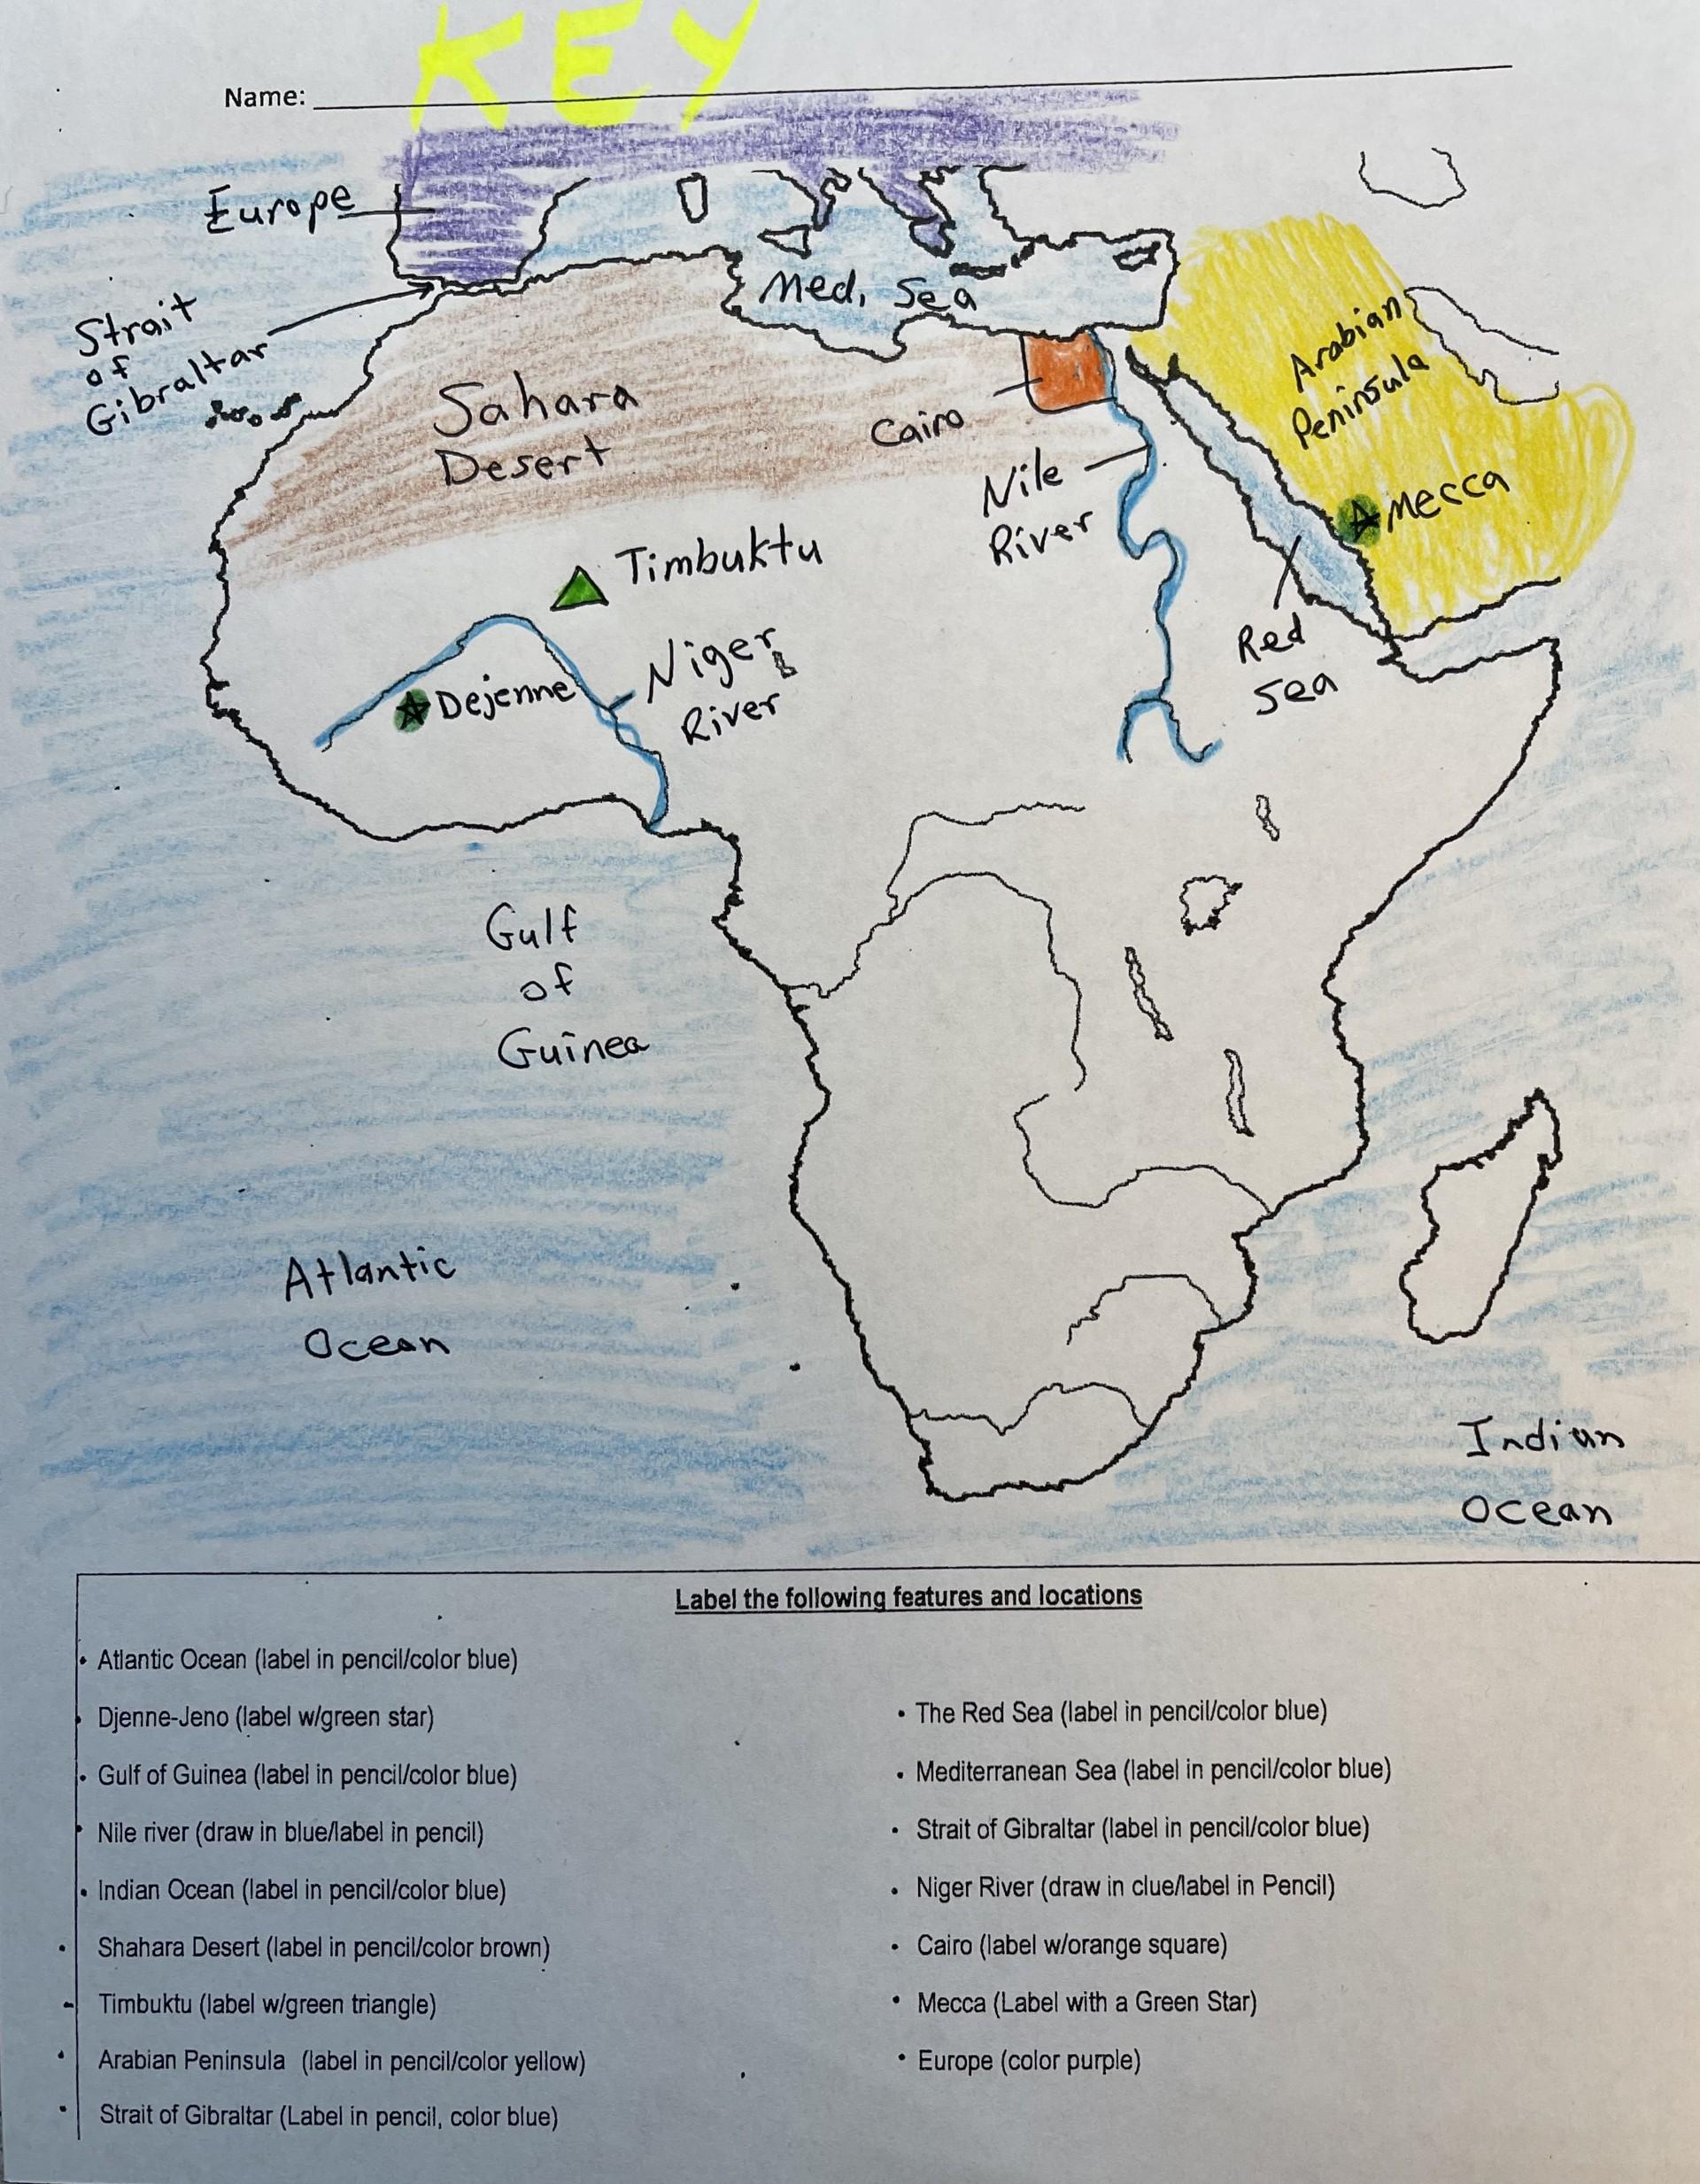 KEY
Name:
Europe
Strait
of
Gibraltar
Med. Sea
Sahara
Desert
Cairo
Nile
River
Arabian
Peninsula
Mecca
Red
Sea
Timbuktu
Dejenne
Niger
River
Gulf
of
Guinea
Atlantic
Ocean
Indian
Ocean
Label the following features and locations
• Atlantic Ocean (label in pencil/color blue)
• Djenne-Jeno (label w/green star)
• Gulf of Guinea (label in pencil/color blue)
• Nile river (draw in blue/label in pencil)
• Indian Ocean (label in pencil/color blue)
• Shahara Desert (label in pencil/color brown)
• Timbuktu (label w/green triangle)
• Arabian Peninsula (label in pencil/color yellow)
• Strait of Gibraltar (Label in pencil, color blue)
• The Red Sea (label in pencil/color blue)
• Mediterranean Sea (label in pencil/color blue)
• Strait of Gibraltar (label in pencil/color blue)
• Niger River (draw in clue/label in Pencil)
• Cairo (label w/orange square)
• Mecca (Label with a Green Star)
• Europe (color purple)